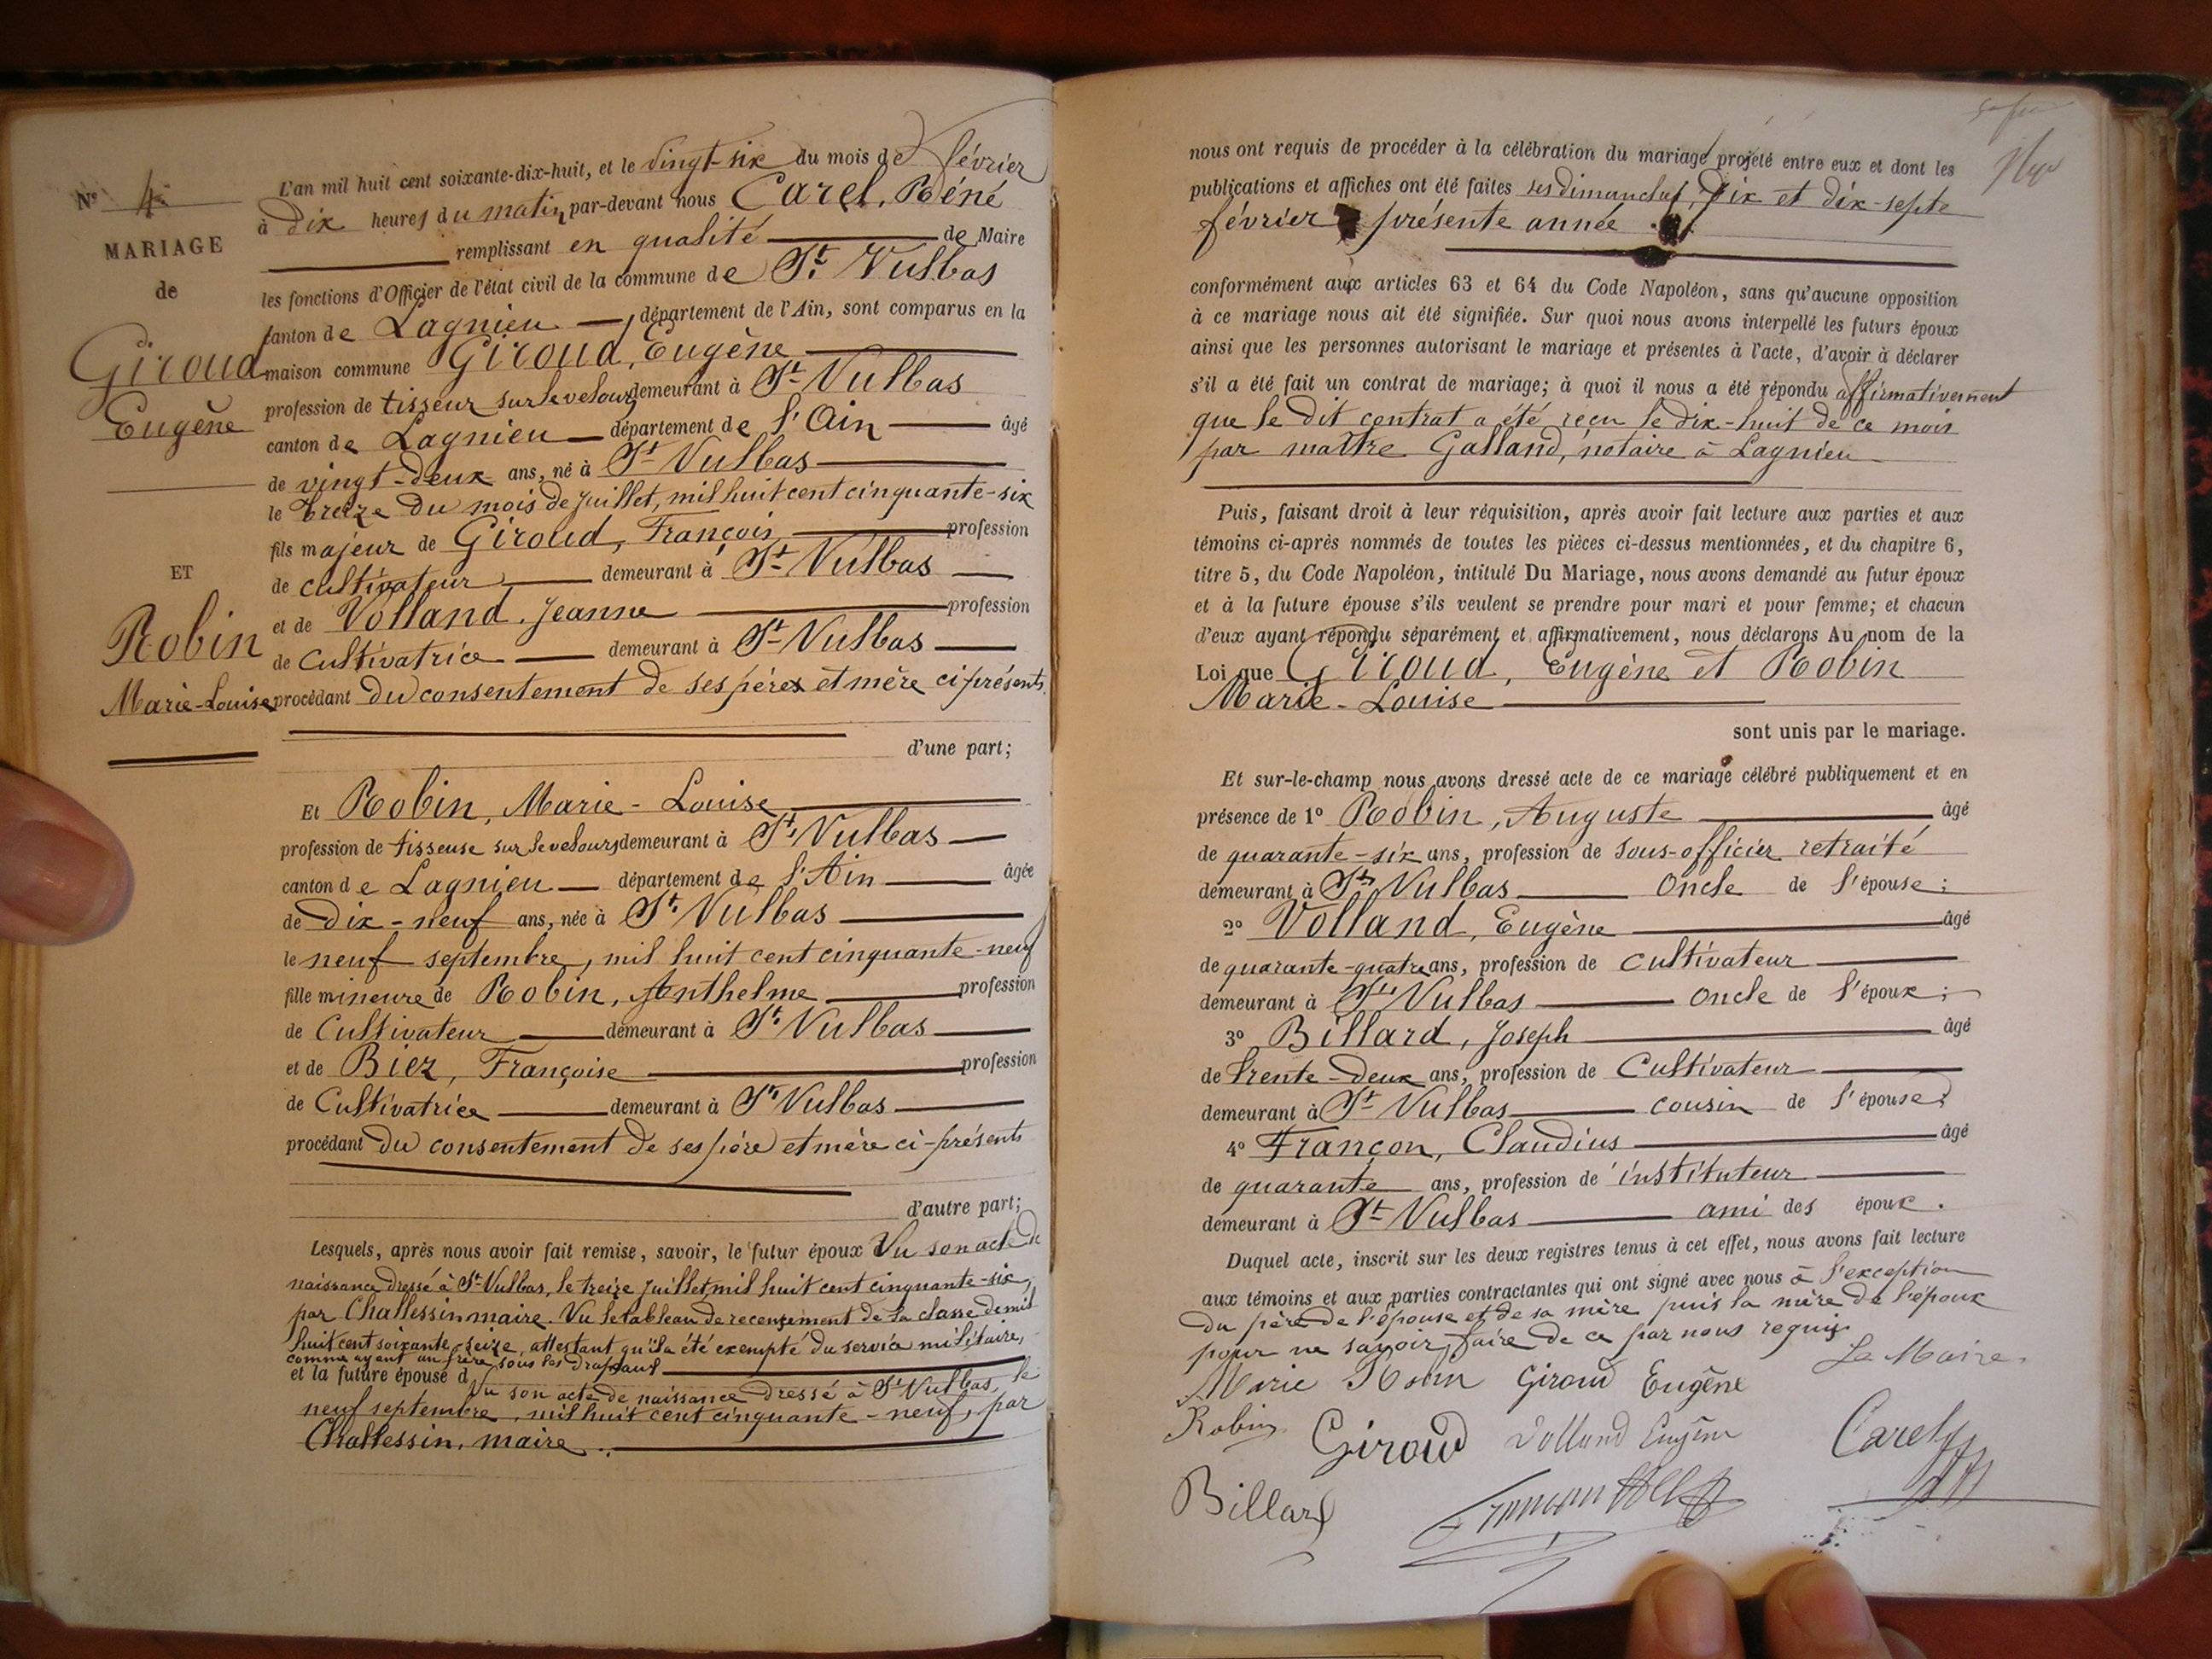 N° 4
MARIAGE
de
Giroud
Eugène
ET
Robin
Marie-Louise
L'an mil huit cent soixante-dix-huit, et le vingt-six du mois de février
à dix heures du matin par-devant nous Carel, Réné
remplissant en qualité de Maire
les fonctions d'Officier de l'état civil de la commune de St. Vulbas
canton de Lagnieu département de l'Ain, sont comparus en la
maison commune Giroud, Eugène
profession de tisseur sur le velours demeurant à St Vulbas
canton de Lagnieu département de l'Ain âgé
de vingt-deux ans, né à St Vulbas
le treize du mois de juillet, mil huit cent cinquante-six
fils majeur de Giroud, François profession
de cultivateur demeurant à St Vulbas
et de Volland, Jeanne profession
de cultivatrice demeurant à St Vulbas
procédant du consentement de ses pères et mère ci présents.
d'une part;
Et Robin, Marie-Louise
profession de tisseuse sur le velours demeurant à St. Vulbas
canton de Lagnieu département de l'Ain âgée
de dix-neuf ans, née à St. Vulbas
le neuf septembre, mil huit cent cinquante-neuf
fille mineure de Robin, Anthelme profession
de Cultivateur demeurant à St. Vulbas
et de Biez, Françoise profession
de Cultivatrice demeurant à St Vulbas
procédant du consentement de ses père et mère ci-présents
d'autre part;
Lesquels, après nous avoir fait remise, savoir, le futur époux Vu son acte de
naissance dressé à St-Vulbas, le treize juillet mil huit cent cinquante-six,
par Challessin maire. Vu le tableau de recensement de la classe de mil
huit cent soixante-seize, attestant qu'il a été exempté du service militaire,
comme ayant un frère sous les drapeaux
et la future épouse d Vu son acte de naissance dressé à St Vulbas, le
neuf septembre, mil huit cent cinquante-neuf, par
Challessin, maire.
nous ont requis de procéder à la célébration du mariage projeté entre eux et dont les
publications et affiches ont été faites les dimanches, dix et dix-sept
février présente année
conformément aux articles 63 et 64 du Code Napoléon, sans qu'aucune opposition
à ce mariage nous ait été signifiée. Sur quoi nous avons interpellé les futurs époux
ainsi que les personnes autorisant le mariage et présentes à l'acte, d'avoir à déclarer
s'il a été fait un contrat de mariage; à quoi il nous a été répondu affirmativement
que le dit contrat a été reçu le dix-huit de ce mois
par maître Galland, notaire à Lagnieu
Puis, faisant droit à leur réquisition, après avoir fait lecture aux parties et aux
témoins ci-après nommés de toutes les pièces ci-dessus mentionnées, et du chapitre 6,
titre 5, du Code Napoléon, intitulé Du Mariage, nous avons demandé au futur époux
et à la future épouse s'ils veulent se prendre pour mari et pour femme; et chacun
d'eux ayant répondu séparément et affirmativement, nous déclarons Au nom de la
Loi que Giroud, Eugène et Robin
Marie-Louise
sont unis par le mariage.
Et sur-le-champ nous avons dressé acte de ce mariage célébré publiquement et en
présence de 1° Robin, Auguste âgé
de quarante-six ans, profession de sous-officier retraité
demeurant à St Vulbas Oncle de l'épouse;
2° Volland, Eugène âgé
de quarante-quatre ans, profession de cultivateur
demeurant à St Vulbas oncle de l'époux;
3° Billard, Joseph âgé
de trente-deux ans, profession de Cultivateur
demeurant à St Vulbas cousin de l'épouse;
4° Françon, Claudius âgé
de quarante ans, profession de instituteur
demeurant à St Vulbas ami des époux.
Duquel acte, inscrit sur les deux registres tenus à cet effet, nous avons fait lecture
aux témoins et aux parties contractantes qui ont signé avec nous à l'exception
du père de l'épouse et de sa mère puis la mère de l'époux
pour ne savoir faire de ce par nous requis
Le Maire.
Marie Robin Giroud Eugène
Robin Giroud Volland Eugène Carel
Billard